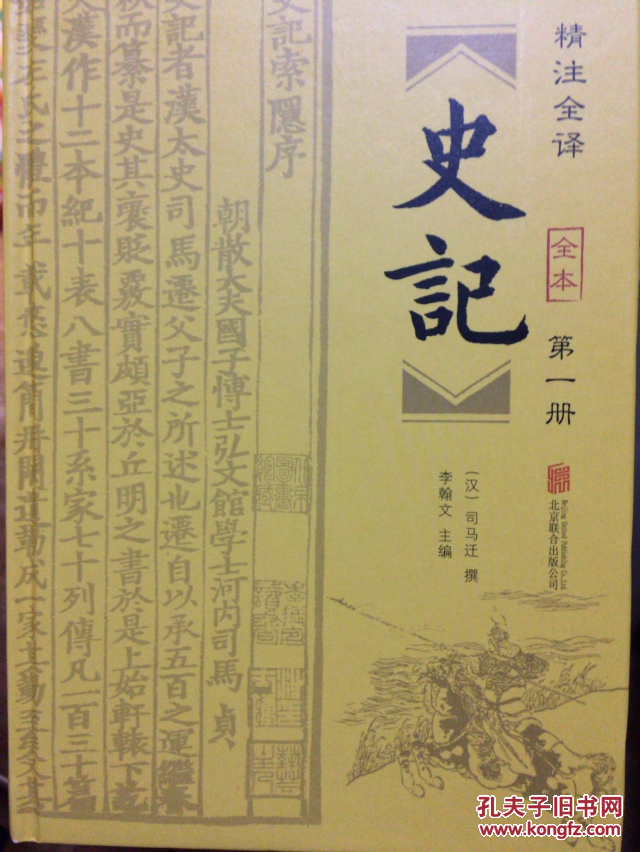 精注全译
全本
第一册
史記
(汉)司马迁 撰
李翰文 主编
北京联合出版公司
Beijing United Publishing Co.,Ltd.
史記索隱序
朝散大夫國子博士弘文館學士河内司馬貞
史記者漢太史司馬遷父子之所述也遷自以承五百之運繼春
秋而纂是史其襃貶覈實頗亞於丘明之書於是上始軒轅下訖
天漢作十二本紀十表八書三十系家七十列傳凡一百三十篇
始變左氏之體而年載悠邈簡册闕遺勒成一家其勤至矣又其
孔夫子旧书网
www.kongfz.com